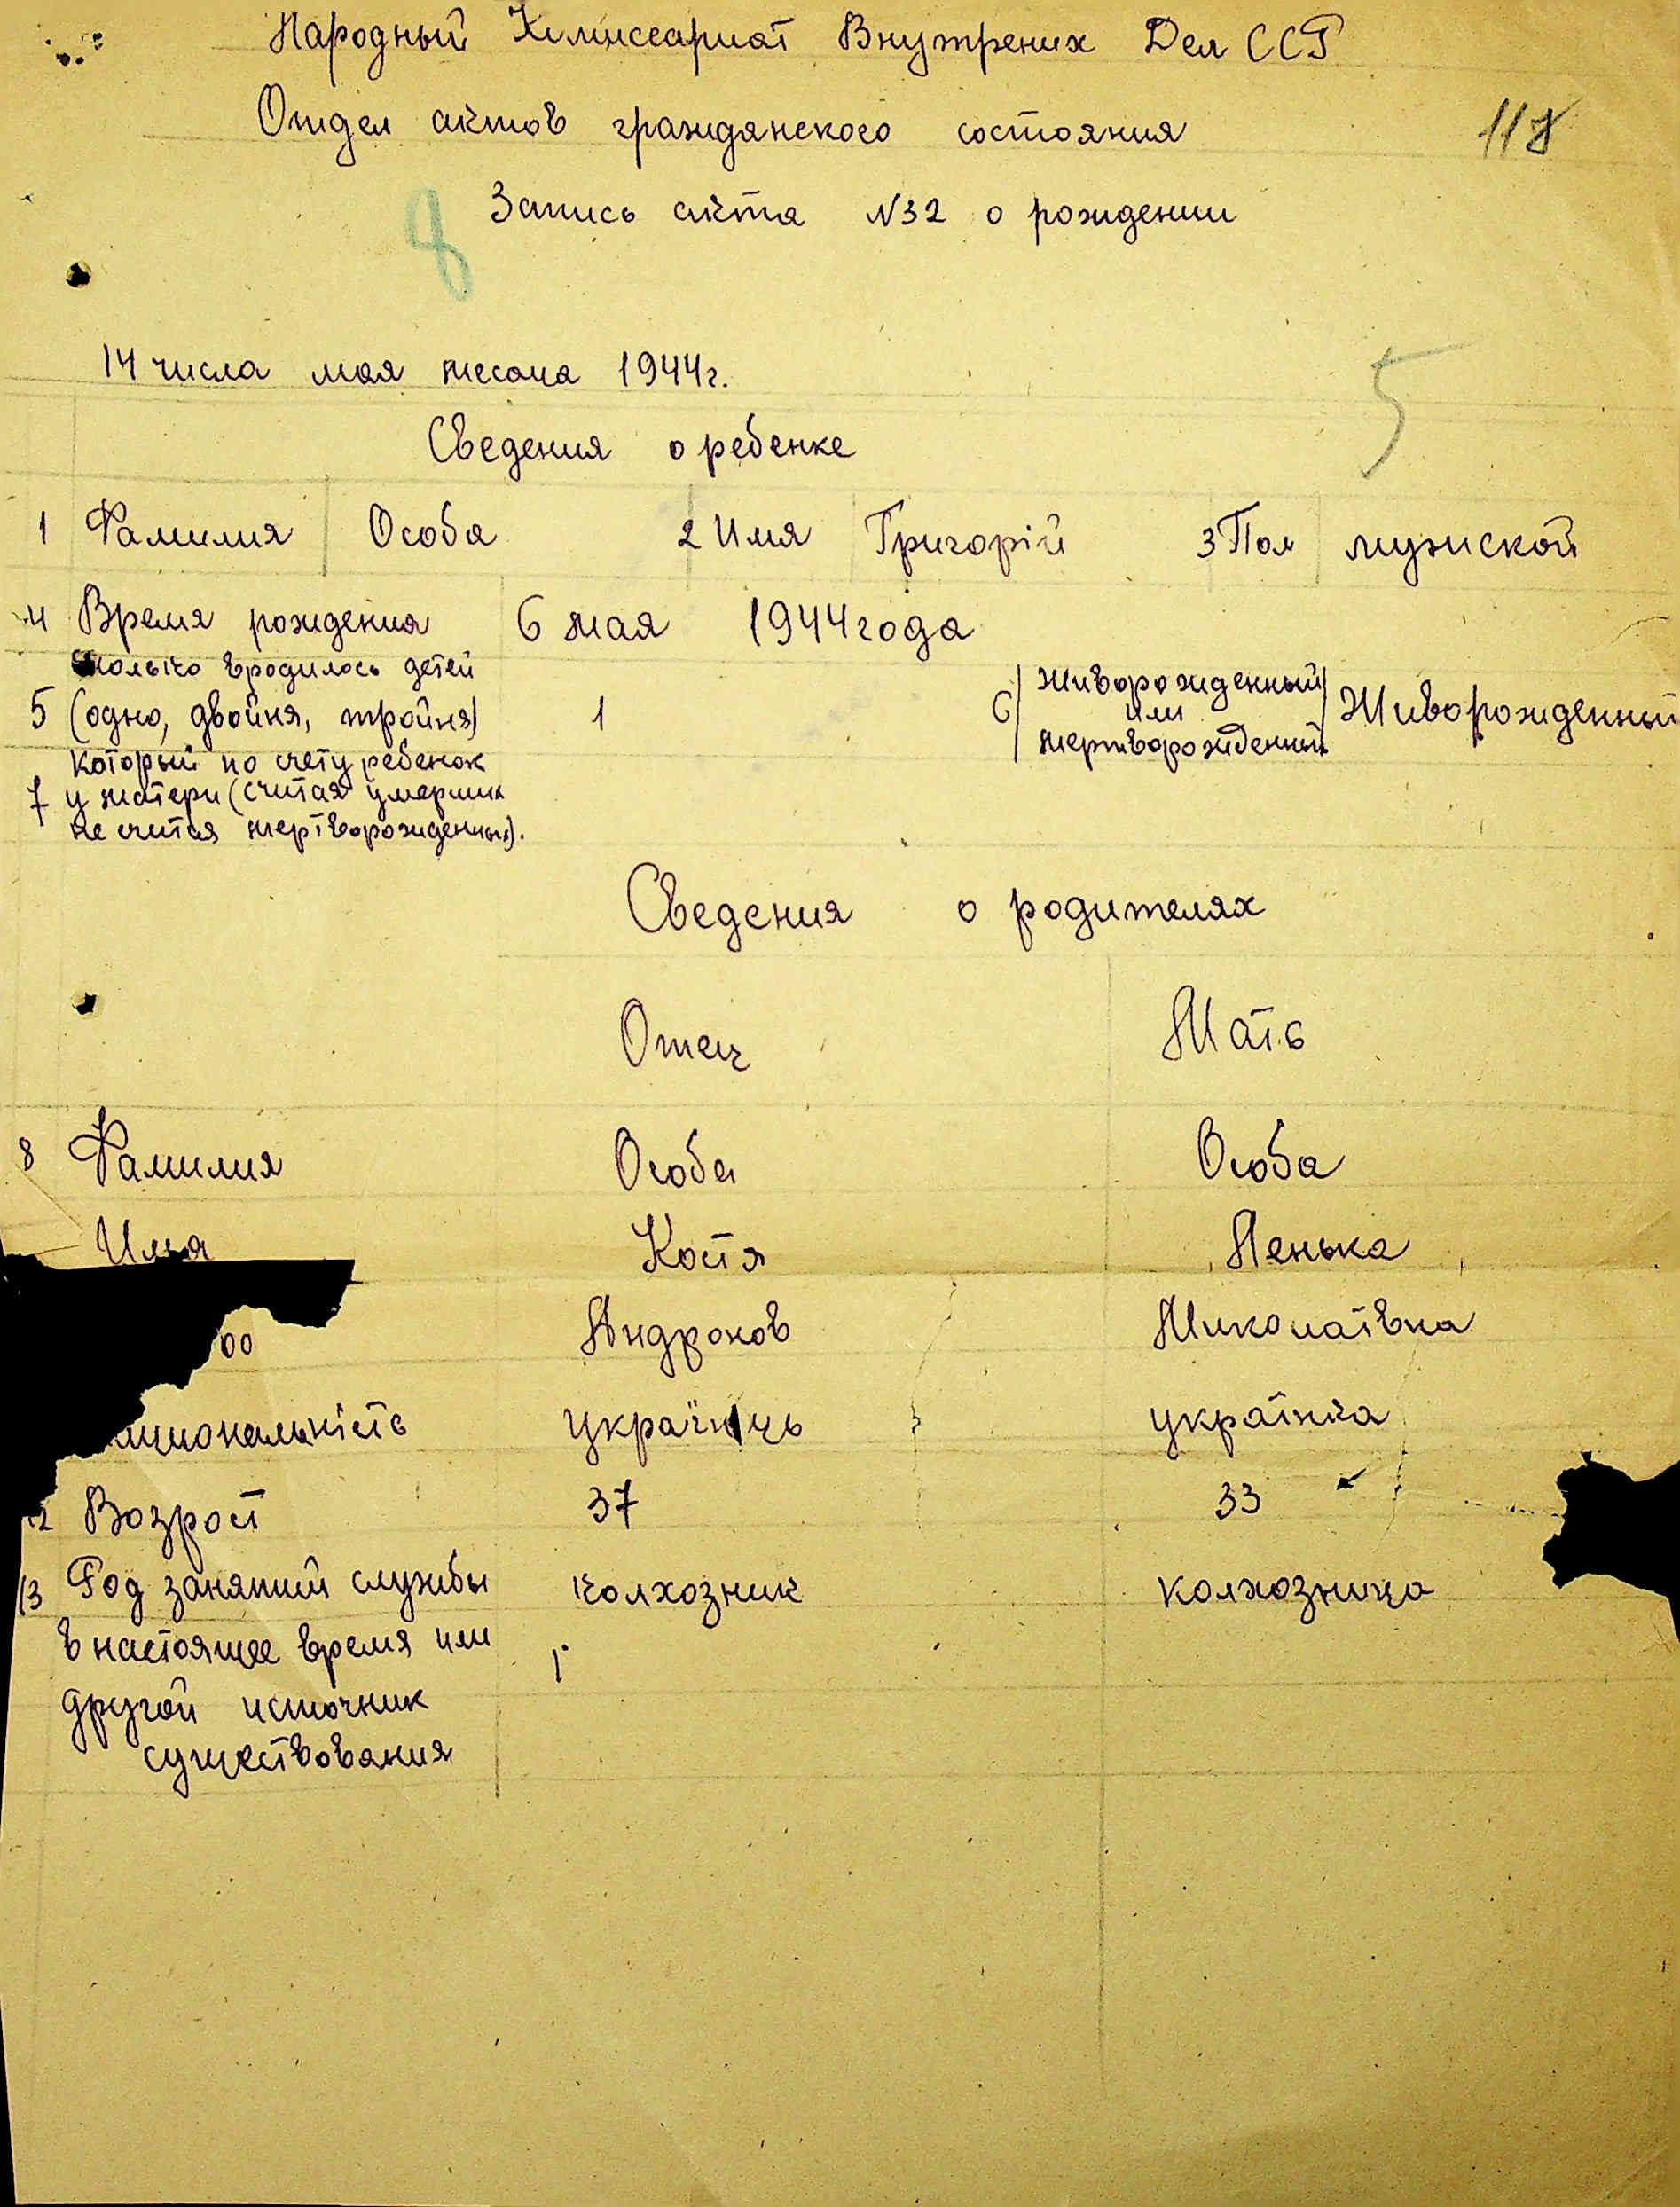 Народный Комиссариат Внутрених Дел ССР
Отдел актов гражданского состояния
118
Запись акта N32 о рождении
8
14 числа мая месяца 1944г.
5
Сведения о ребенке
1 Фамилия Особа 2 Имя Григорій 3 Пол мужской
4 Время рождения 6 мая 1944 года
сколько вродилось детей
5 (одно, двойня, тройня) 1 6 живорожденный или мертворожденный Живорожденный
который по счету ребенок
7 у матери (считая умерших
не считая мертворожденных).
Сведения о родителях
Отец Мать
8 Фамилия Особа Особа
Имя Костя Ленька
Андронов Миколаївна
аціональність українць українка
12 Возрост 37 33
13 Род занятий службы колхозник колхозница
в настоящее время или
другой источник
существования